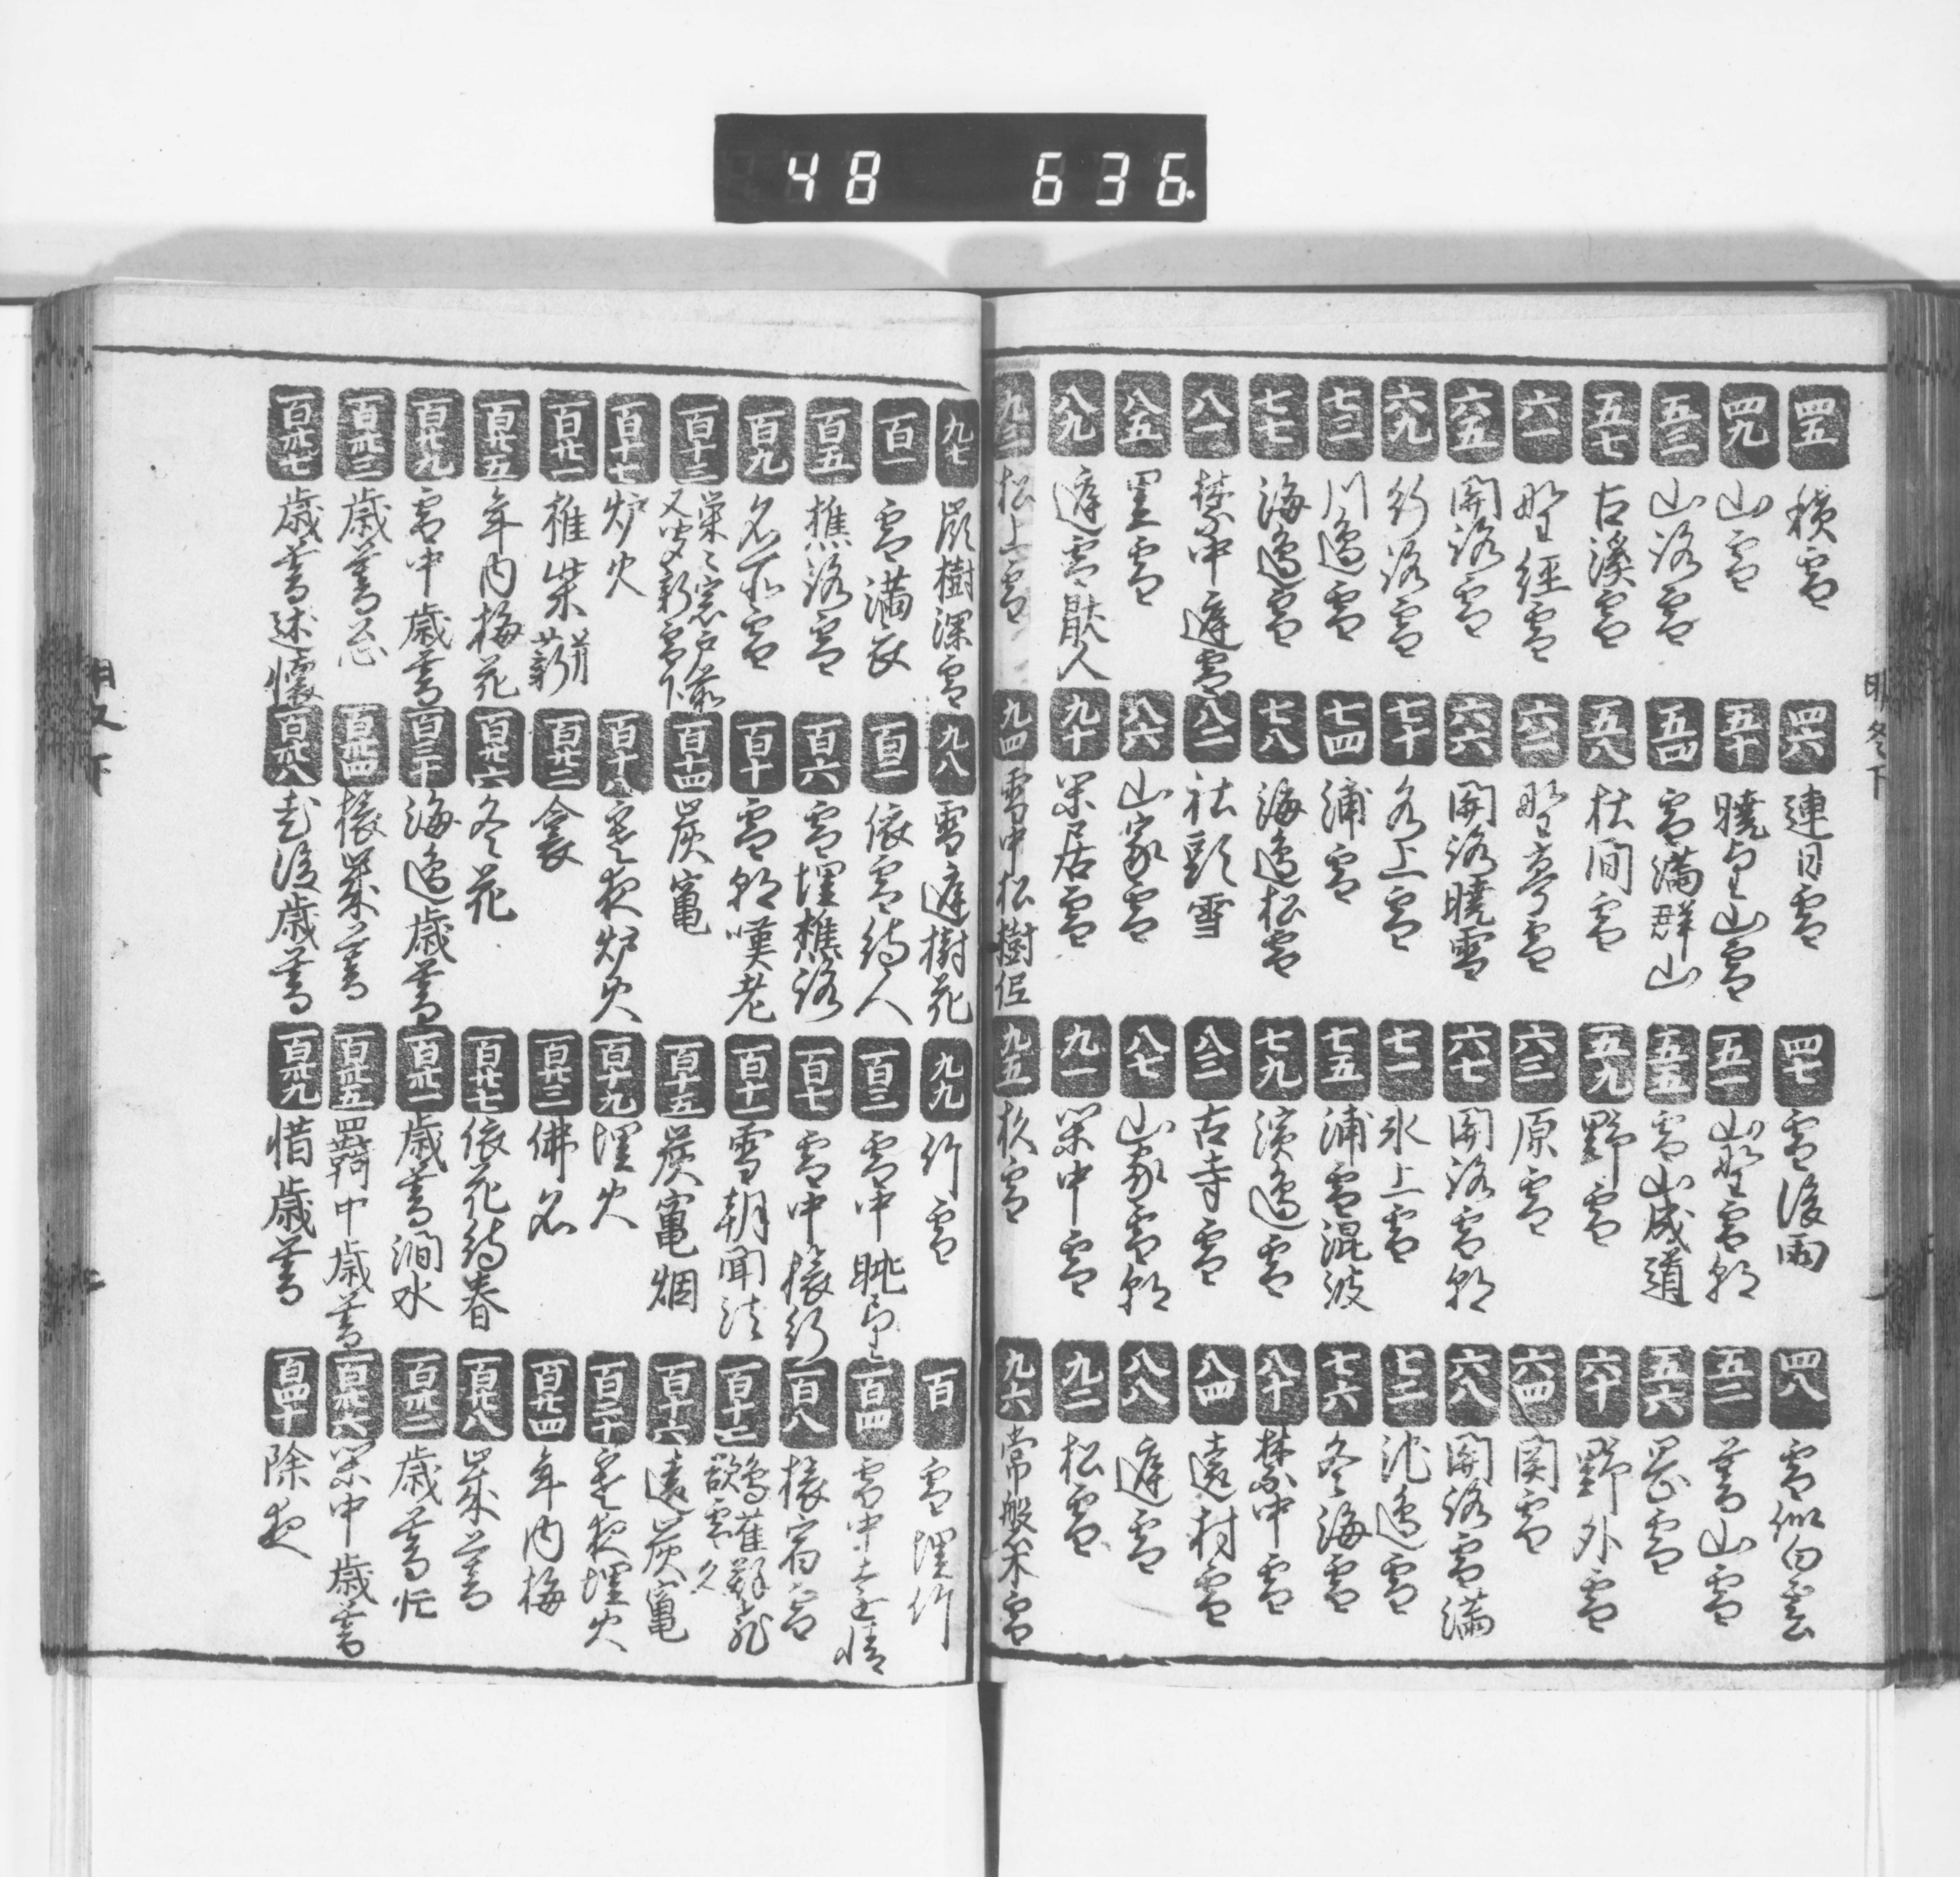 48 636.
四五 積雪
四六 連日雪
四七 雪後雨
四八 雪似白雲
四九 山雪
五十 暁望山雪
五一 山野雪朝
五二 暮山雪
五三 山路雪
五四 雪満群山
五五 雪山成道
五六 雪
五七 古溪雪
五八 杜間雪
五九 野雪
六十 野外雪
六一 野径雪
六二 野亭雪
六三 原雪
六四 関雪
六五 関路雪
六六 関路暁雪
六七 関路雪朝
六八 関路雪満
六九 行路雪
七十 氷上雪
七一 氷上雪
七二 池邊雪
七三 川邊雪
七四 浦雪
七五 浦雪混波
七六 冬海雪
七七 海邊雪
七八 海邊松雪
七九 濱邊雪
八十 禁中雪
八一 禁中庭雪
八二 社頭雪
八三 古寺雪
八四 遠村雪
八五 里雪
八六 山家雪
八七 山家雪朝
八八 庭雪
八九 庭雪厭人
九十 閑居雪
九一 閑中雪
九二 松雪
九三 松上雪
九四 雪中松樹低
九五 杉雪
九六 常盤木雪
明冬下
九七 嶺樹深雪
九八 雪庭樹花
九九 竹雪
百 雪埋竹
百一 雪満衣
百二 依雪待人
百三 雪中眺望
百四 雪中遠情
百五 樵路雪
百六 雪埋樵路
百七 雪中旅行
百八 旅宿雪
百九 名所雪
百十 雪朝嘆老
百十一 雪朝聞法
百十二
百十三
百十四 炭竈
百十五 炭竈烟
百十六 遠炭竈
百十七 炉火
百十八 寒夜炉火
百十九 埋火
百二十 寒夜埋火
百廿一 椎柴
百廿二 衾
百廿三 佛名
百廿四 年内梅
百廿五 年内梅花
百廿六 冬花
百廿七 依花待春
百廿八 歳暮
百廿九 雪中歳暮
百三十 海邊歳暮
百卅一 歳暮澗水
百卅二 歳暮忙
百卅三 歳暮忩
百卅四 旅歳暮
百卅五 羇中歳暮
百卅六 閑中歳暮
百卅七 歳暮述懐
百卅八 老後歳暮
百卅九 惜歳暮
百四十 除夜